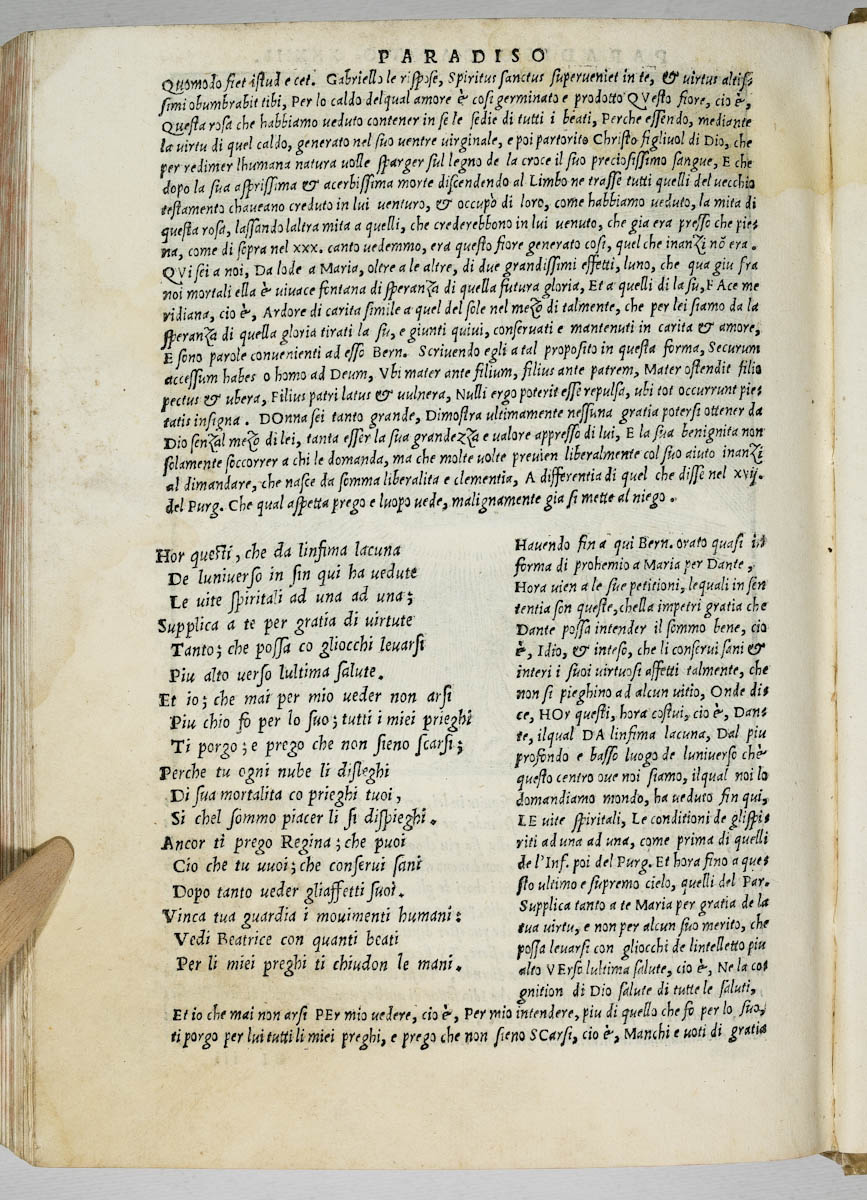 PARADISO
Quomodo fiet istud e cet. Gabriello le rispose, Spiritus sanctus superueniet in te, & virtus altis-
simi obumbrabit tibi, Per lo caldo delqual amore è cosi germinato e prodotto QVesto fiore, cio è,
Questa rosa che habbiamo veduto contener in se le sedie di tutti i beati, Perche essendo, mediante
la virtu di quel caldo, generato nel suo ventre virginale, e poi partorito Christo figliuol di Dio, che
per redimer lhumana natura uolle sparger sul legno de la croce il suo preciosissimo sangue, E che
dopo la sua asprissima & acerbissima morte discendendo al Limbo ne trasse tutti quelli del vecchio
testamento chaueano creduto in lui venturo, & occupò di loro, come habbiamo veduto, la mita di
questa rosa, lassando laltra mita a quelli, che crederebbono in lui venuto, che gia era presso che pie-
na, come di sopra nel xxx. canto vedemmo, era questo fiore generato cosi, quel che inanzi nō era.
QVi sei a noi, Da lode a Maria, oltre a le altre, di due grandissimi effetti, luno, che qua giu fra
noi mortali ella è viuace fontana di speranza di quella futura gloria, Et a quelli di la su, FAce me
ridiana, cio è, Ardore di carita simile a quel del sole nel mezo di talmente, che per lei siamo da la
speranza di quella gloria tirati la su, e giunti quiui, conseruati e mantenuti in carita & amore,
E sono parole conuenienti ad esso Bern. Scriuendo egli a tal proposito in questa forma, Securum
accessum habes o homo ad Deum, Vbi mater ante filium, filius ante patrem, Mater ostendit filio
pectus & ubera, Filius patri latus & vulnera, Nulli ergo poterit esse repulsa, ubi tot occurrunt pie-
tatis insigna. DOnna sei tanto grande, Dimostra ultimamente nessuna gratia potersi ottener da
Dio senzal mezo di lei, tanta esser la sua grandezza e valore appresso di lui, E la sua benignita non
solamente soccorrer a chi le domanda, ma che molte volte preuien liberalmente col suo aiuto inanzi
al dimandare, che nasce da somma liberalita e clementia, A differentia di quel che disse nel xvij.
del Purg. Che qual aspetta prego e luopo vede, malignamente gia si mette al niego.
Hor questi, che da linfima lacuna
De luniuerso in sin qui ha vedute
Le uite spiritali ad una ad una;
Supplica a te per gratia di virtute
Tanto; che possa co gliocchi leuarsi
Piu alto verso lultima salute.
Et io; che mai per mio ueder non arsi
Piu chio fo per lo suo; tutti i miei prieghi
Ti porgo; e prego che non sieno scarsi;
Perche tu ogni nube li disleghi
Di sua mortalita co prieghi tuoi,
Si chel sommo piacer li si dispieghi.
Ancor ti prego Regina; che puoi
Cio che tu uuoi; che conserui sani
Dopo tanto ueder gliaffetti suoi.
Vinca tua guardia i mouimenti humani:
Vedi Beatrice con quanti beati
Per li miei preghi ti chiudon le mani.
Hauendo fin a qui Bern. orato quasi in
forma di prohemio a Maria per Dante,
Hora vien a le sue petitioni, lequali in sen
tentia son queste, chella impetri gratia che
Dante possa intender il sommo bene, cio
è, Idio, & inteso, che li conserui sani &
interi i suoi virtuosi affetti talmente, che
non si pieghino ad alcun uitio, Onde di-
ce, HOr questi, hora costui, cio è, Dan-
te, ilqual DA linfima lacuna, Dal piu
profondo e basso luogo de luniuerso chè
questo centro oue noi siamo, ilqual noi lo
domandiamo mondo, ha veduto fin qui,
LE uite spiritali, Le conditioni de glispi-
riti ad una ad una, come prima di quelli
de l'Inf. poi del Purg. Et hora fino a que-
sto ultimo e supremo cielo, quelli del Par.
Supplica tanto a te Maria per gratia de la
tua virtu, e non per alcun suo merito, che
possa leuarsi con gliocchi de lintelletto piu
alto VErso lultima salute, cio è, Ne la co-
gnition di Dio salute di tutte le saluti,
Et io che mai non arsi PEr mio vedere, cio è, Per mio intendere, piu di quello che fo per lo suo,
ti porgo per lui tutti li miei preghi, e prego che non sieno SCarsi, cio è, Manchi e uoti di gratia